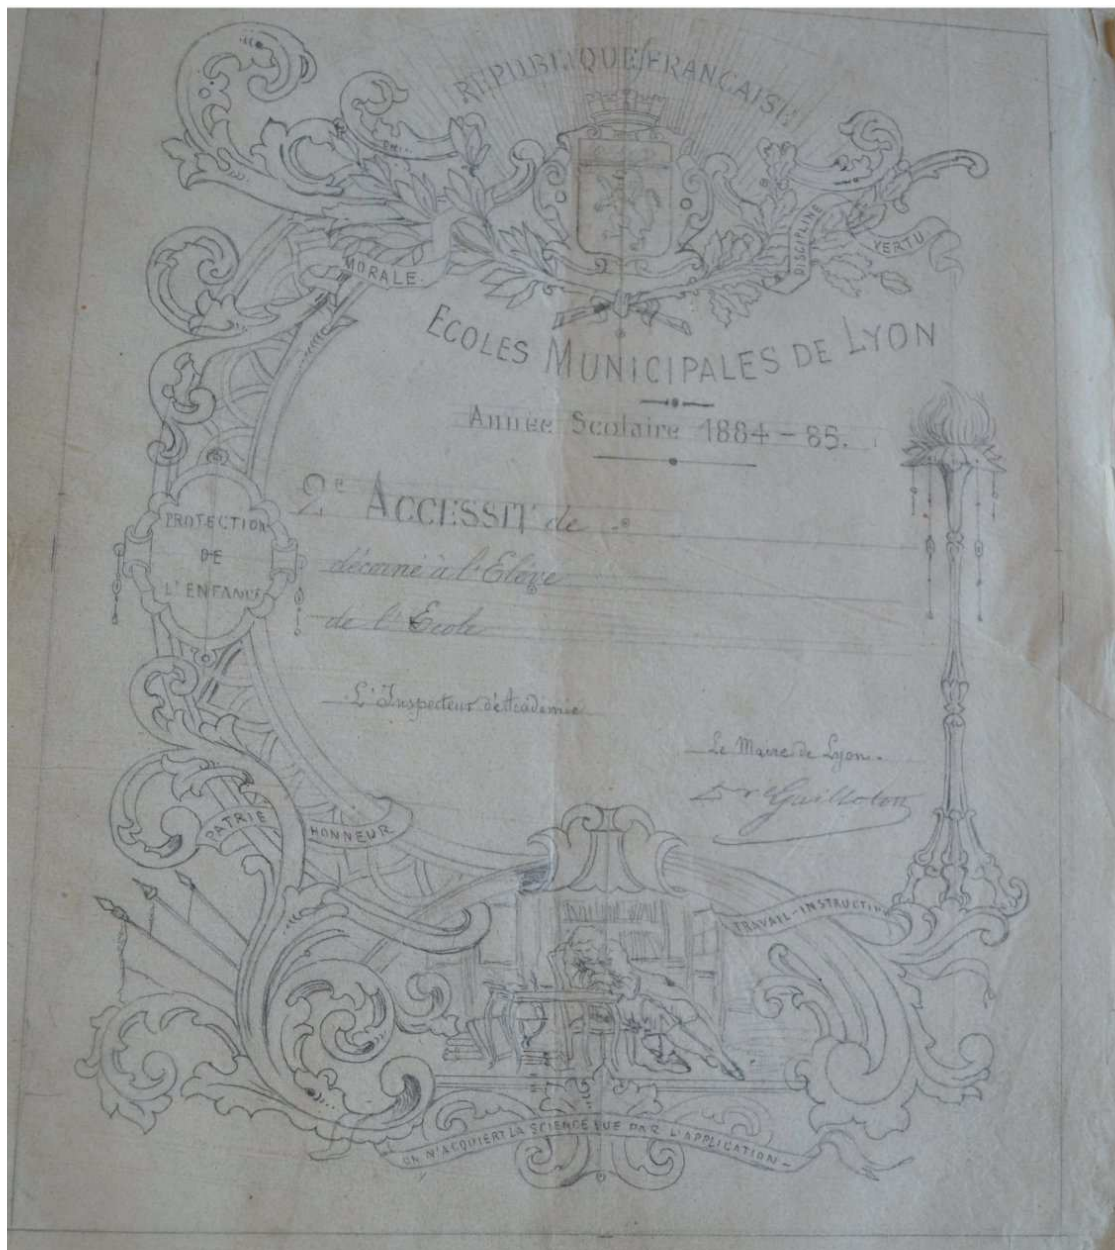 RÉPUBLIQUE FRANÇAISE
MORALE.
DISCIPLINE
VERTU
ECOLES MUNICIPALES DE LYON
Année Scolaire 1884-85.
2e ACCESSIT de
décerné à l'Elève
de l'Ecole
PROTECTION
DE
L'ENFANCE
L'Inspecteur d'Académie
Le Maire de Lyon.
Dr Gailleton
PATRIE
HONNEUR
TRAVAIL-INSTRUCTION
ON N'ACQUIERT LA SCIENCE QUE PAR L'APPLICATION-